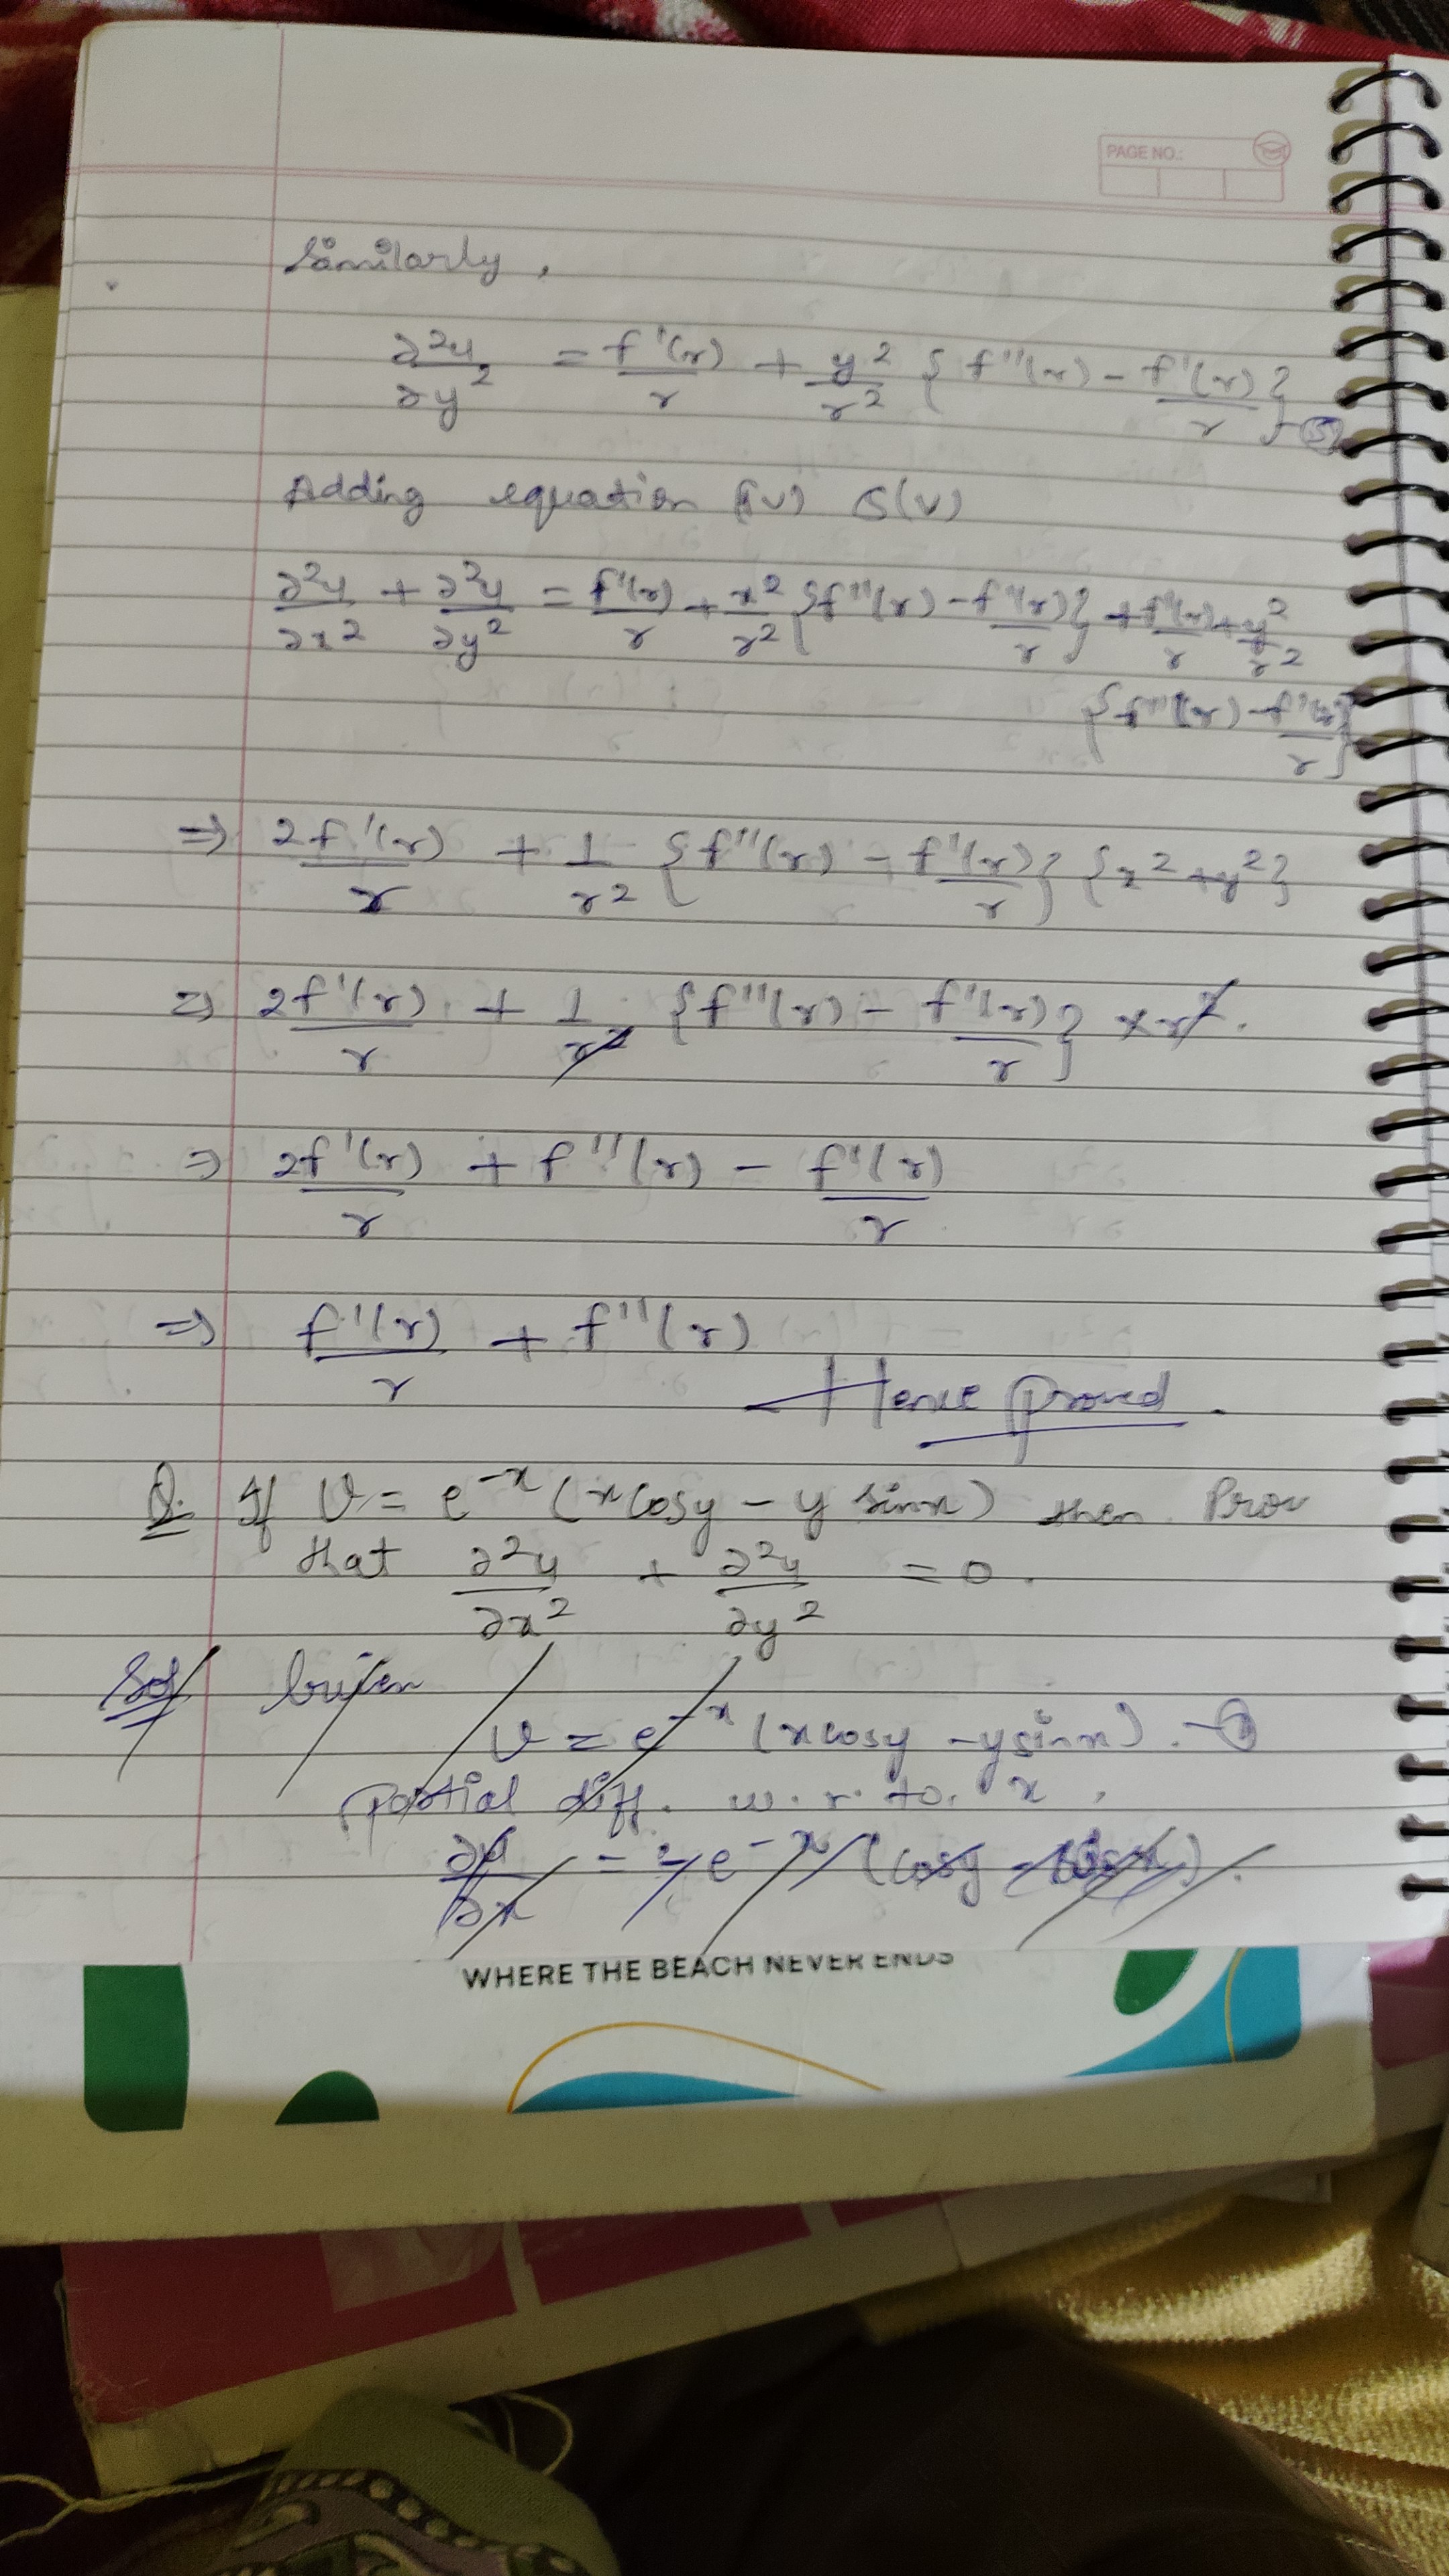 PAGE NO.:
Similarly,
∂²u/∂y² = f'(r)/r + y²/r² {f''(r) - f'(r)/r} -(5)
Adding equation (iv) & (v)
∂²u/∂x² + ∂²u/∂y² = f'(r)/r + x²/r² {f''(r) - f'(r)/r} + f'(r)/r + y²/r²
{f''(r) - f'(r)/r}
⇒ 2f'(r)/r + 1/r² {f''(r) - f'(r)/r} {x² + y²}
⇒ 2f'(r)/r + 1/r² {f''(r) - f'(r)/r} × r².
⇒ 2f'(r)/r + f''(r) - f'(r)/r
⇒ f'(r)/r + f''(r)
Hence proved.
Q. If U = e^-x (x cosy - y sinx) then Prov
that ∂²u/∂x² + ∂²u/∂y² = 0.
Sol Given
U = e^-x (x cosy - y sinx). -①
partial diff. w.r. to. x,
WHERE THE BEACH NEVER ENDS